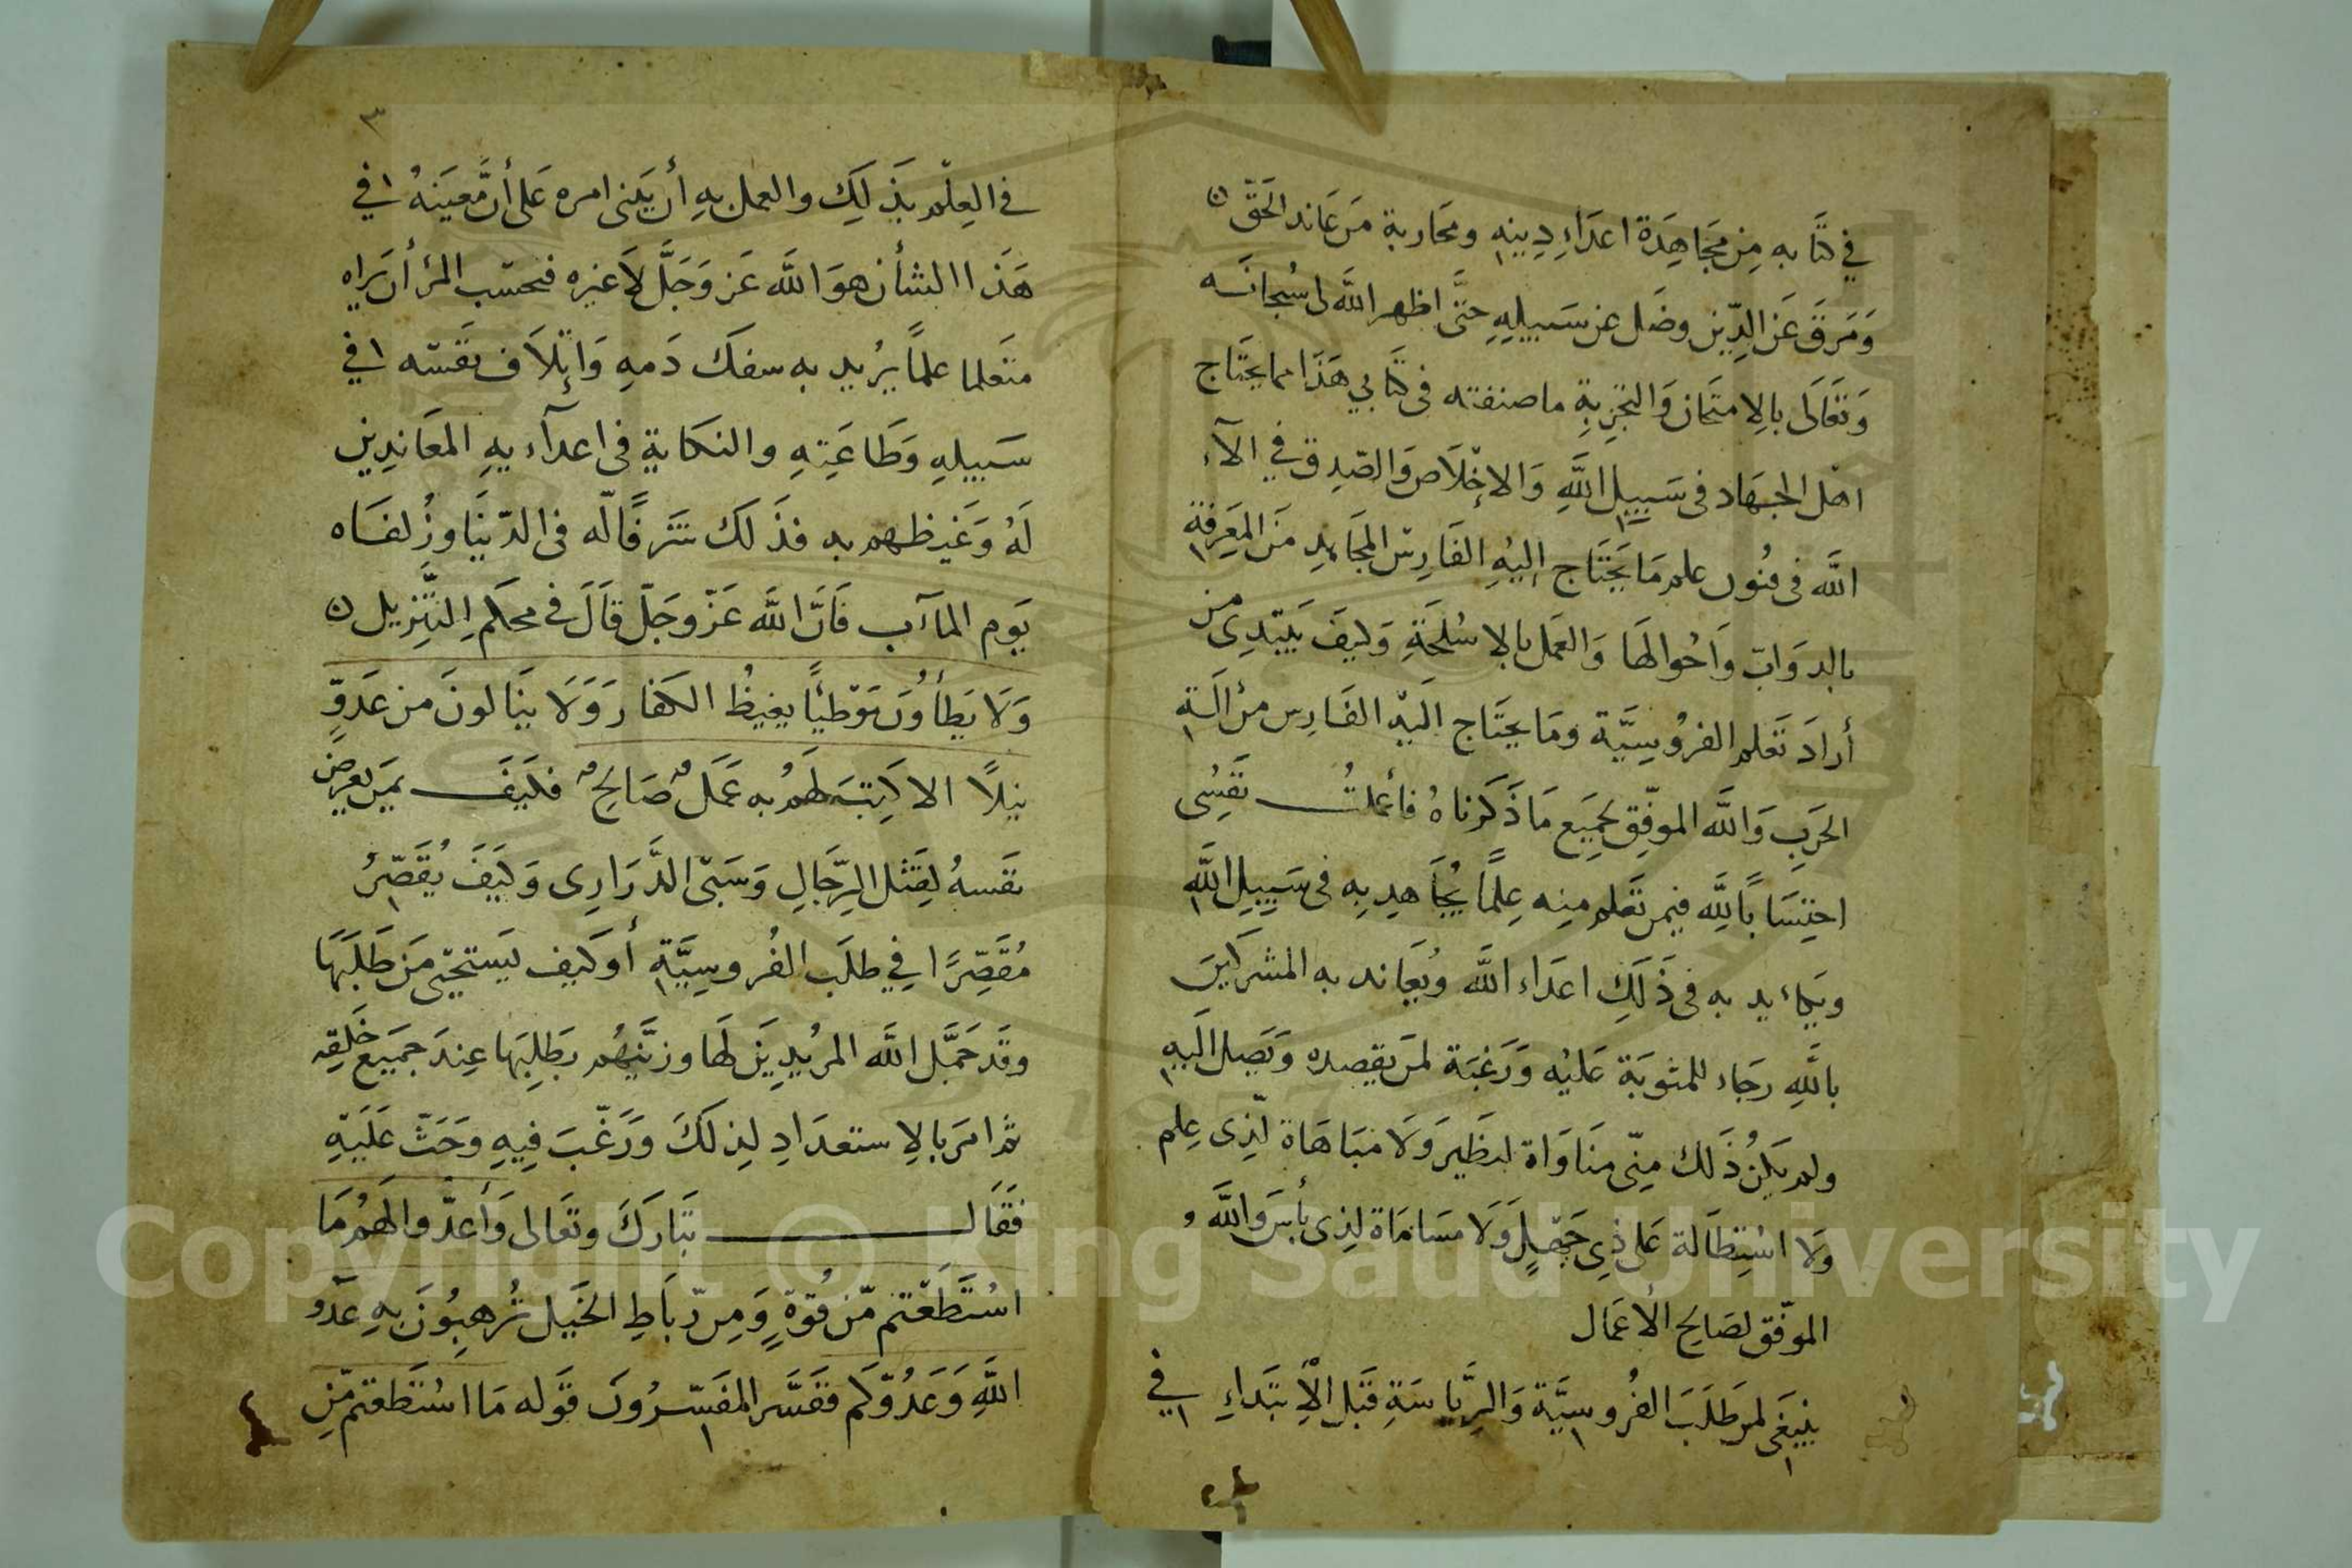 في كتابه من مجاهدة اعداء دينه ومحاربة من عاند الحق
ومرق عن الدين وضل عن سبيله حتى اظهر الله لى سبحانه
وتعالى بالامتحان والتجربة ما صنفته فى كتابي هذا مما يحتاج
اهل الجهاد فى سبيل الله والاخلاص والصدق في الآء
الله فى فنون علم ما يحتاج إليه الفارس المجاهد من المعرفة
بالدواب واحوالها والعمل بالاسلحة وكيف يبتدى من
أراد تعلم الفروسية وما يحتاج اليه الفارس من ألة
الحرب والله الموفق لجميع ما ذكرناه فأعملت نفسى
احتسابا لله فيمن تعلم منه علما يجاهد به فى سبيل الله
ويكايد به فى ذلك اعداء الله ويعاند به المشركين
بالله رجاء للمثوبة عليه ورغبة لمن يقصده ويصل اليه
ولم يكن ذلك منى مناواة لنظير ولا مباهاة لذى علم
ولا استطالة على ذى جهل ولا مساماة لذى بأس والله
الموفق لصالح الأعمال
ينبغى لمن طلب الفروسية والرياسة قبل الأبتداء في
٣
فى العلم بذلك والعمل به أن يبنى امره على أن معينه في
هذا الشأن هو الله عز وجل لا غيره فحسب المرء أن يراه
متعلما علما يريد به سفك دمه وإتلاف نفسه في
سبيله وطاعته والنكاية فى اعدآءيه المعاندين
له وغيظهم به فذلك شرفا له فى الدنيا وزلفاه
يوم المآب فان الله عز وجل قال فى محكم التنزيل
ولا يطأون موطيا يغيظ الكفار ولا ينالون من عدو
نيلا الا كتب لهم به عمل صالح فكيف بمن يعرض
نفسه لقتل الرجال وسبى الذرارى وكيف يقصر
مقصرا في طلب الفروسية أو كيف يستحيى من طلبها
وقد جمل الله المريدين لها وزينهم بطلبها عند جميع خلقه
ثم امر بالاستعداد لذلك ورغب فيه وحث عليه
فقال تبارك وتعالى وأعدوا لهم ما
استطعتم من قوة ومن رباط الخيل ترهبون به عدو
الله وعدوكم ففسر المفسرون قوله ما استطعتم من
Copyright © King Saud University
1957